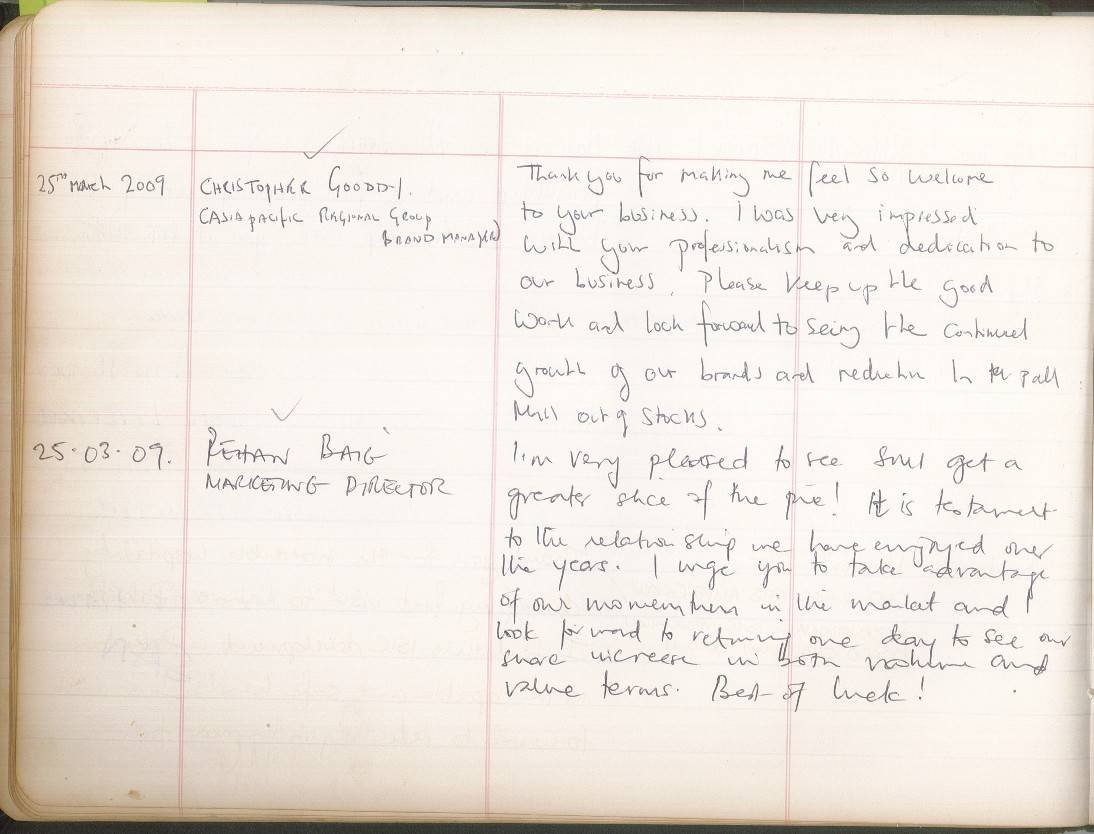 25TH March 2009
CHRISTOPHER GOODDY.
(ASIA pacific REGIONAL Group
BRAND MANAGER)
Thank you for making me feel so welcome
to your business. I was very impressed
with your professionalism and dedication to
our business. Please keep up the good
work and look forward to seing the continued
growth of our brands and reduction in the pall
Mall out of stocks.
25.03.09.
REHAN BAIG
MARKETING DIRECTOR
I'm very pleased to see get a
greater slice of the pie! It is testament
to the relationship we have enjoyed over
the years. I urge you to take advantage
of our momentum in the market and I
look forward to returning one day to see our
share increase in both volume and
value terms. Best of luck!